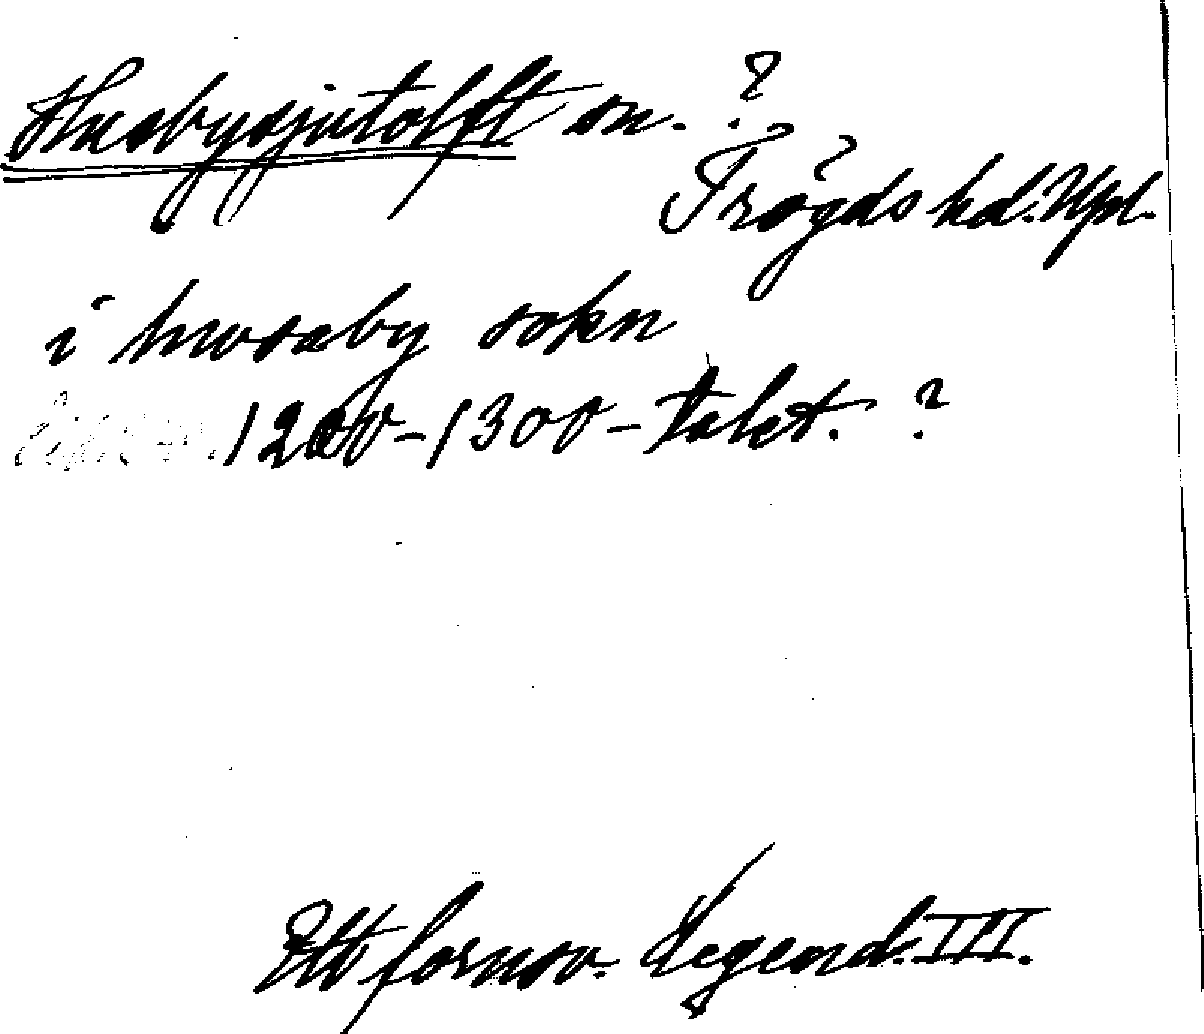 Husbysjutolft sn. ?
Trögds hd. Upl.
i hwsaby sokn
1200-1300-talet. ?
Ett fornsv. Legend. III.